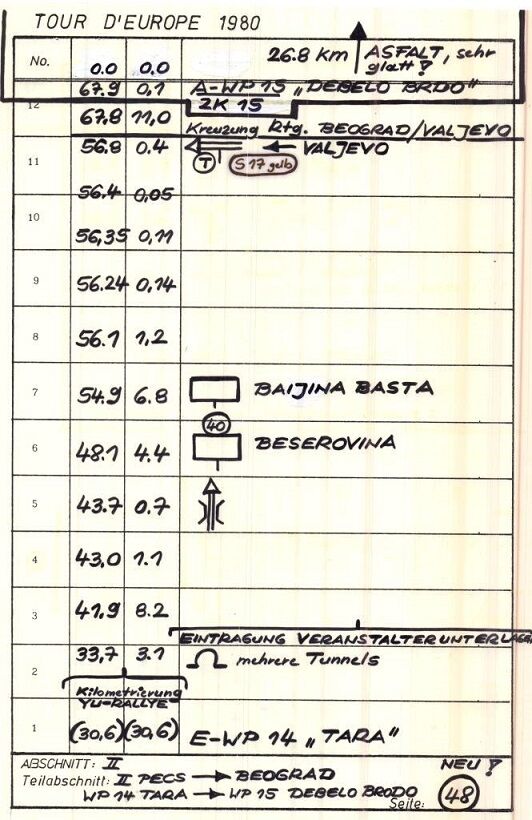 TOUR D'EUROPE 1980
No. 0.0 0.0 26.8 km ASFALT, sehr
glatt!
67.9 0,1 A-WP 15 „DEBELO BRDO"
12 ZK 15
67.8 11,0 Kreuzung Rtg. BEOGRAD/VALJEVO
11 56.8 0.4 VALJEVO
T S 17 gelb
56.4 0,05
10 56,35 0,11
9 56.24 0,14
8 56.1 1,2
7 54.9 6.8 BAIJINA BASTA
40
6 48.1 4.4 BESEROVINA
5 43.7 0.7
4 43,0 1.1
3 41,9 8.2
EINTRAGUNG VERANSTALTERUNTERLAGEN
2 33,7 3.1 mehrere Tunnels
Kilometrierung
YU-RALLYE
1 (30,6) (30,6) E-WP 14 „TARA"
ABSCHNITT: II NEU!
Teilabschnitt: II PECS → BEOGRAD
WP 14 TARA → WP 15 DEBELO BRODO
Seite: 48